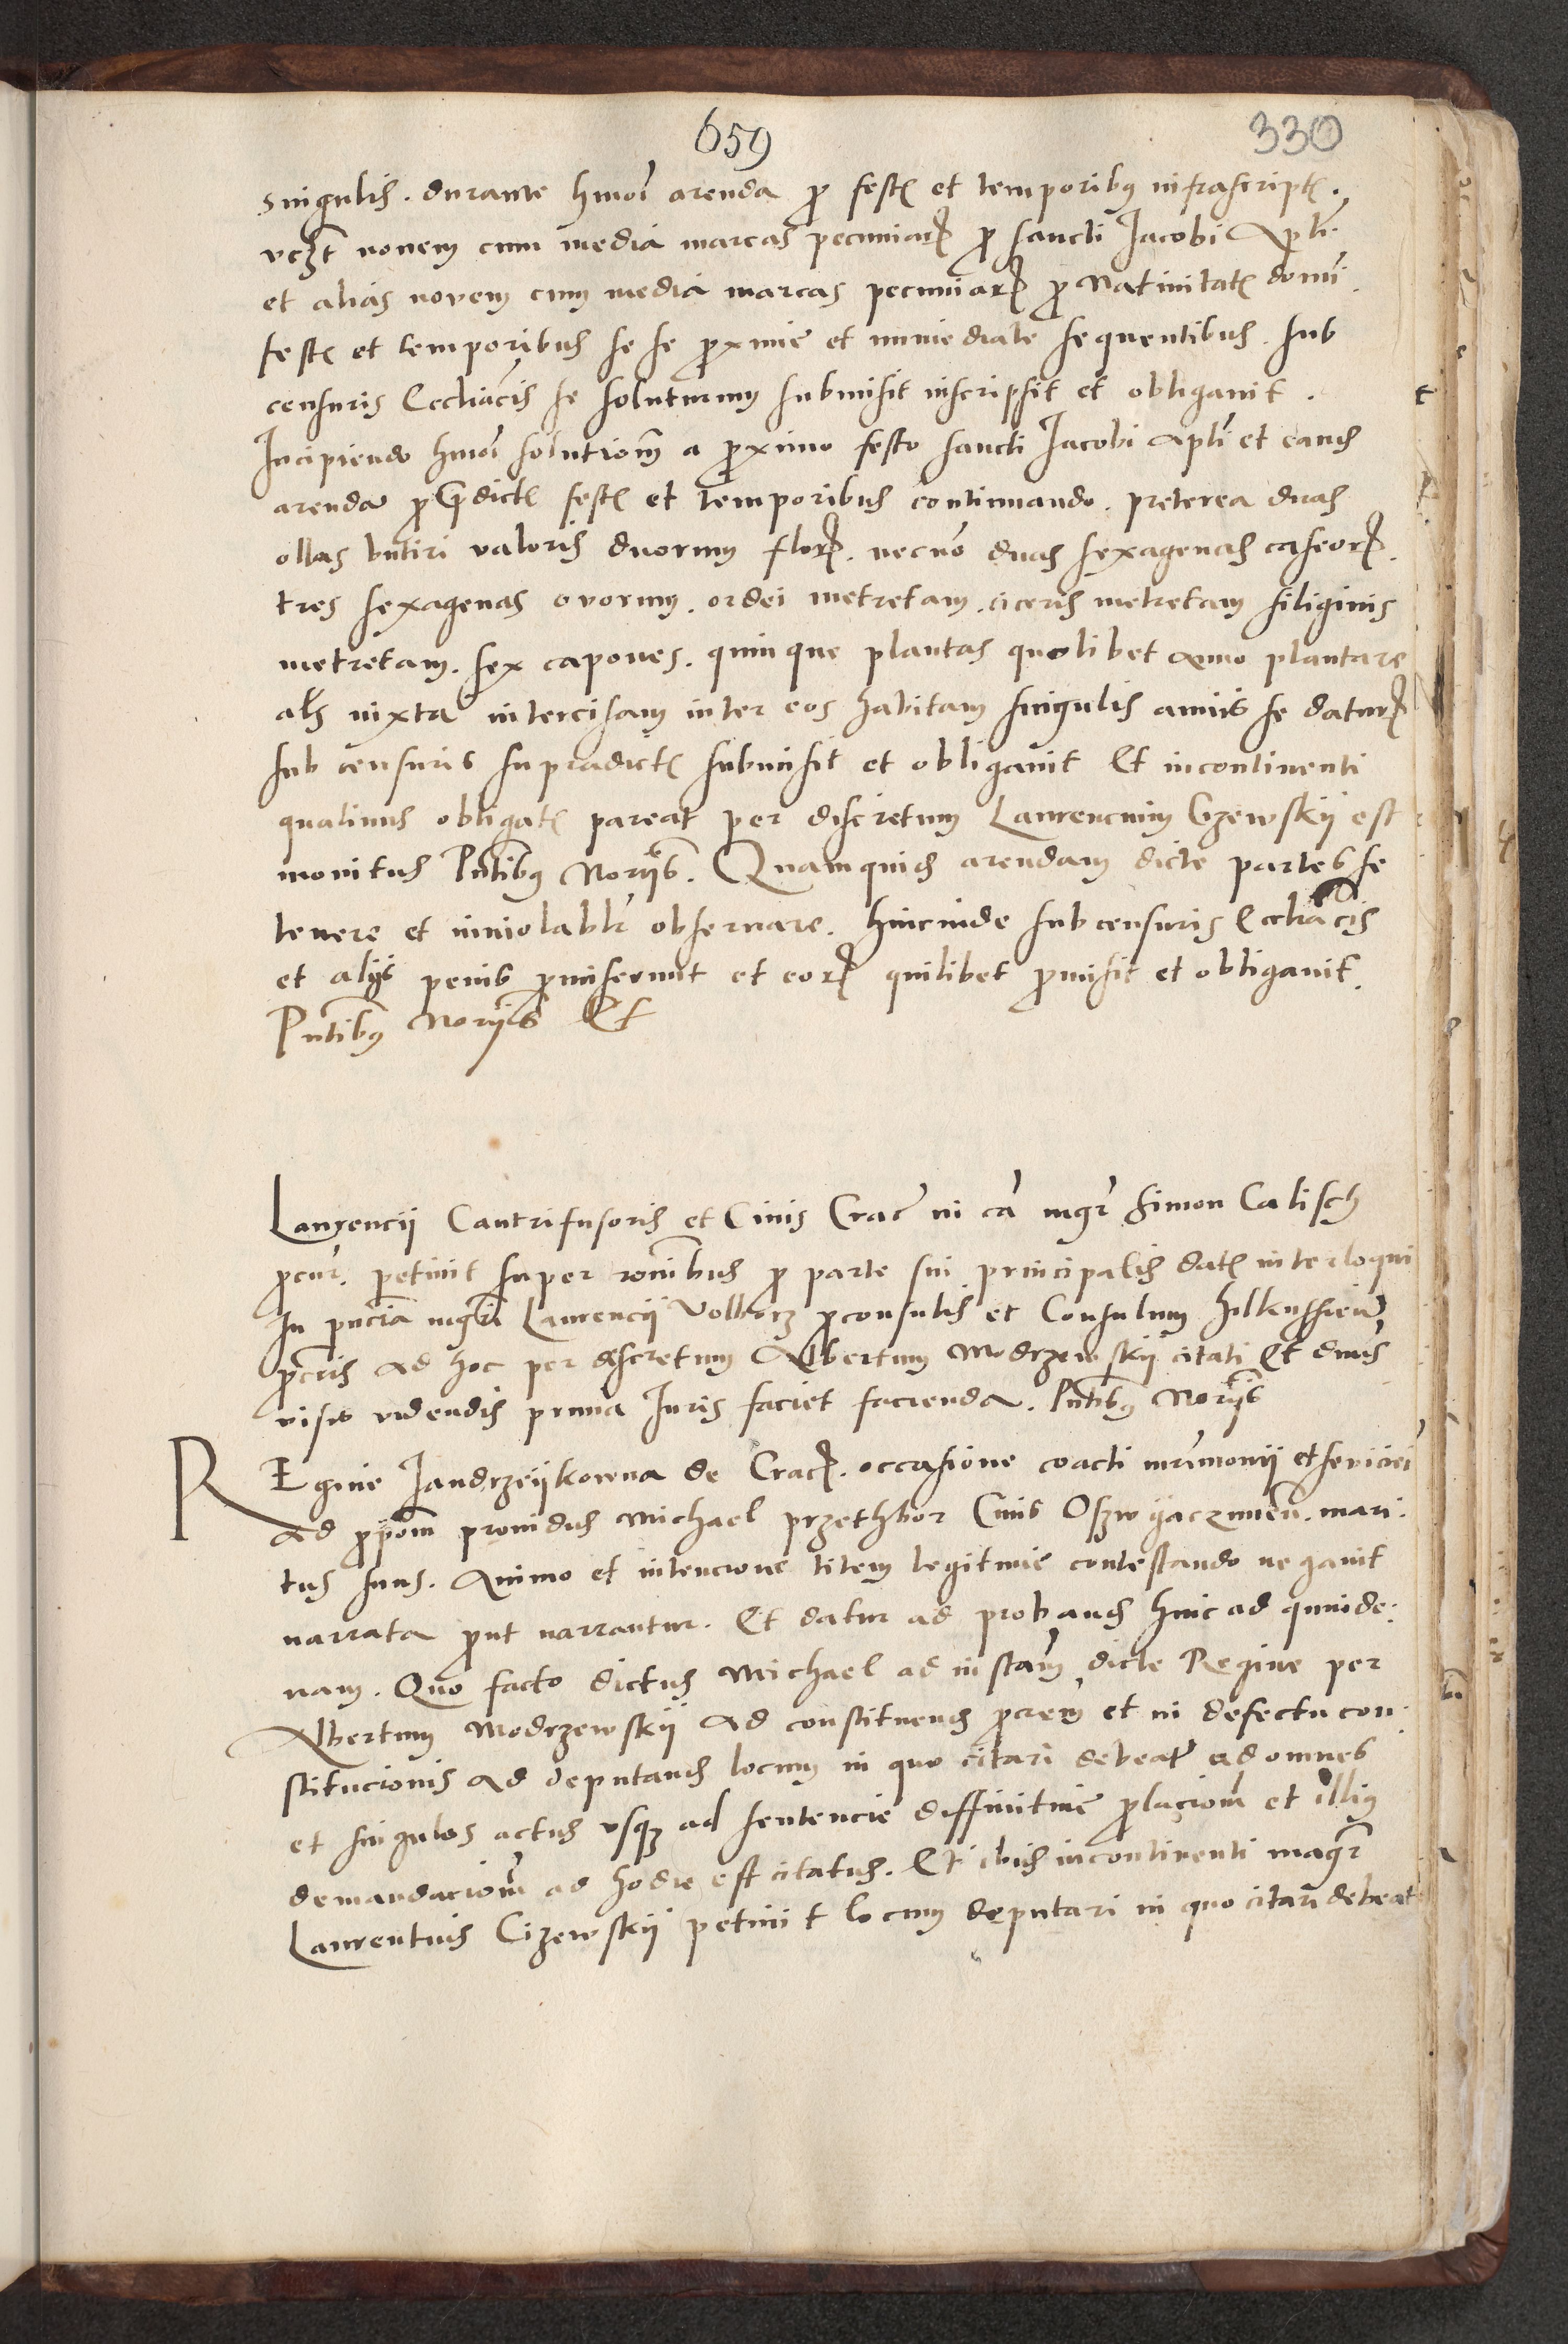 659 330
singulis. durante hmoi arenda p fest et temporibus infrascript.
vczt novem cum media marcas pecuniar p sancti Jacobi Apli
et alias novem cum media marcas pecuniar p Nativitat domi
fest et temporibus se se pxime et immediate sequentibus. sub
censuris Eccliacis se soluturum submisit inscripsit et obligavit.
Incipiendo hmoi solutiom a pximo festo sancti Jacobi apli et eand
arenda p predict fest et temporibus continuando. preterea duas
ollas butiri valoris duorum flor. necno duas sexagenas caseor.
tres sexagenas ovorum. ordei metretam. ciceris metretam siliginis
metretam. sex capones. quinque plantas quolibet anno plantare
als iuxta intercisam inter eos habitam singulis annis se datur
sub censuris supradict submisit et obligavit Et incontinenti
quatinus obligat pareat per discretum Laurencium Czewskij est
monitus Pntibus Norijs. Quamquid arendam dicte partes se
tenere et inviolablr observare. hincinde sub censuris Eccliacis
et alijs penis pmiserunt et eor quilibet pmisit et obligavit.
Pntibus Norijs Et
Laurencij Cantrifusoris et Civis Crac in ca mgr Simon Calisch
pcur. petivit super ronibus p parte sui principalis dat interloqui
In pncia mgri Laurencij Volborz pconsulis et Consulum Hilkussien
pcris ad hoc per discretum Albertum Modrzewskij citati Et dnus
visis videndis prima Juris faciet facienda. Pntibus Norijs
REgine Jandrzeijkowna de Crac. occasione coacti mrimonij et seviciei
ad ppom providus Michael przethbor Civis Oszwijaczimen. mari.
tus suus. Animo et intencione litem legitime contestando negavit
narrata put narrantur. Et datur ad proband hinc ad quinde.
nam. Quo facto dictus Michael ad instam dicte Regine per
Albertum Modrzewskij ad constituend pcrem et in defectu con.
stitucionis ad deputand locum in quo citari debeat ad omnes
et singulos actus usq ad sentencie diffinitive placiom et illius
demandaciom ad hodie est citatus. Et ibid incontinenti magr
Laurentius Cizewskij petivit locum deputari in quo citari debeat